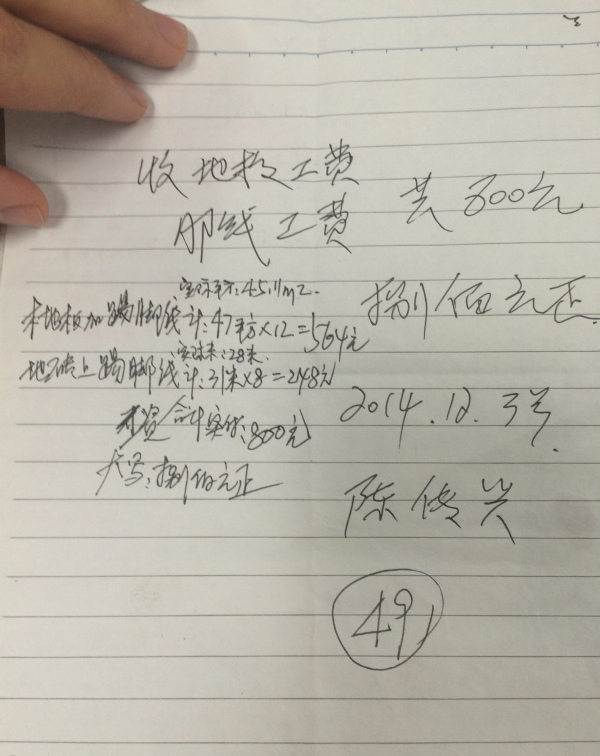 收地板工费
脚线工费 共800元
捌佰元正
实际平方:45.11m2.
木地板加踢脚线计:47平方×12=564元
实际米:28米.
地砖上踢脚线计:31米×8=248元
合计实付:800元
大写:捌佰元正
2014.12.3号.
陈传兴
49